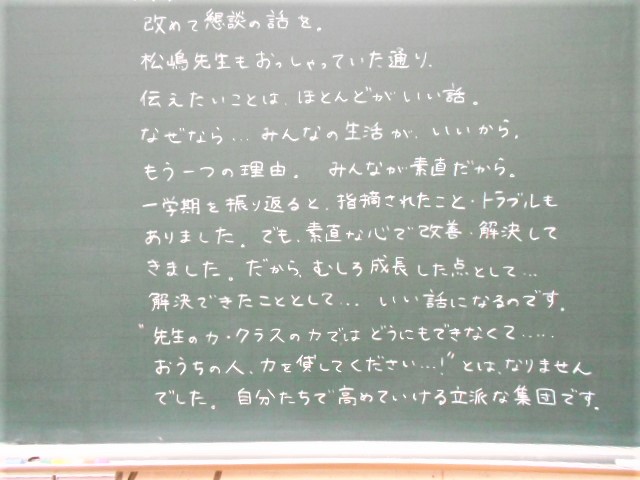 改めて懇談の話を。
松嶋先生もおっしゃっていた通り、
伝えたいことは、ほとんどがいい話。
なぜなら…みんなの生活が、いいから。
もう一つの理由。みんなが素直だから。
一学期を振り返ると、指摘されたこと・トラブルも
ありました。でも、素直な心で改善・解決して
きました。だから、むしろ成長した点として…
解決できたこととして…いい話になるのです。
"先生の力・クラスの力ではどうにもできなくて……
おうちの人、力を貸してください…!"とは、なりません
でした。自分たちで高めていける立派な集団です。